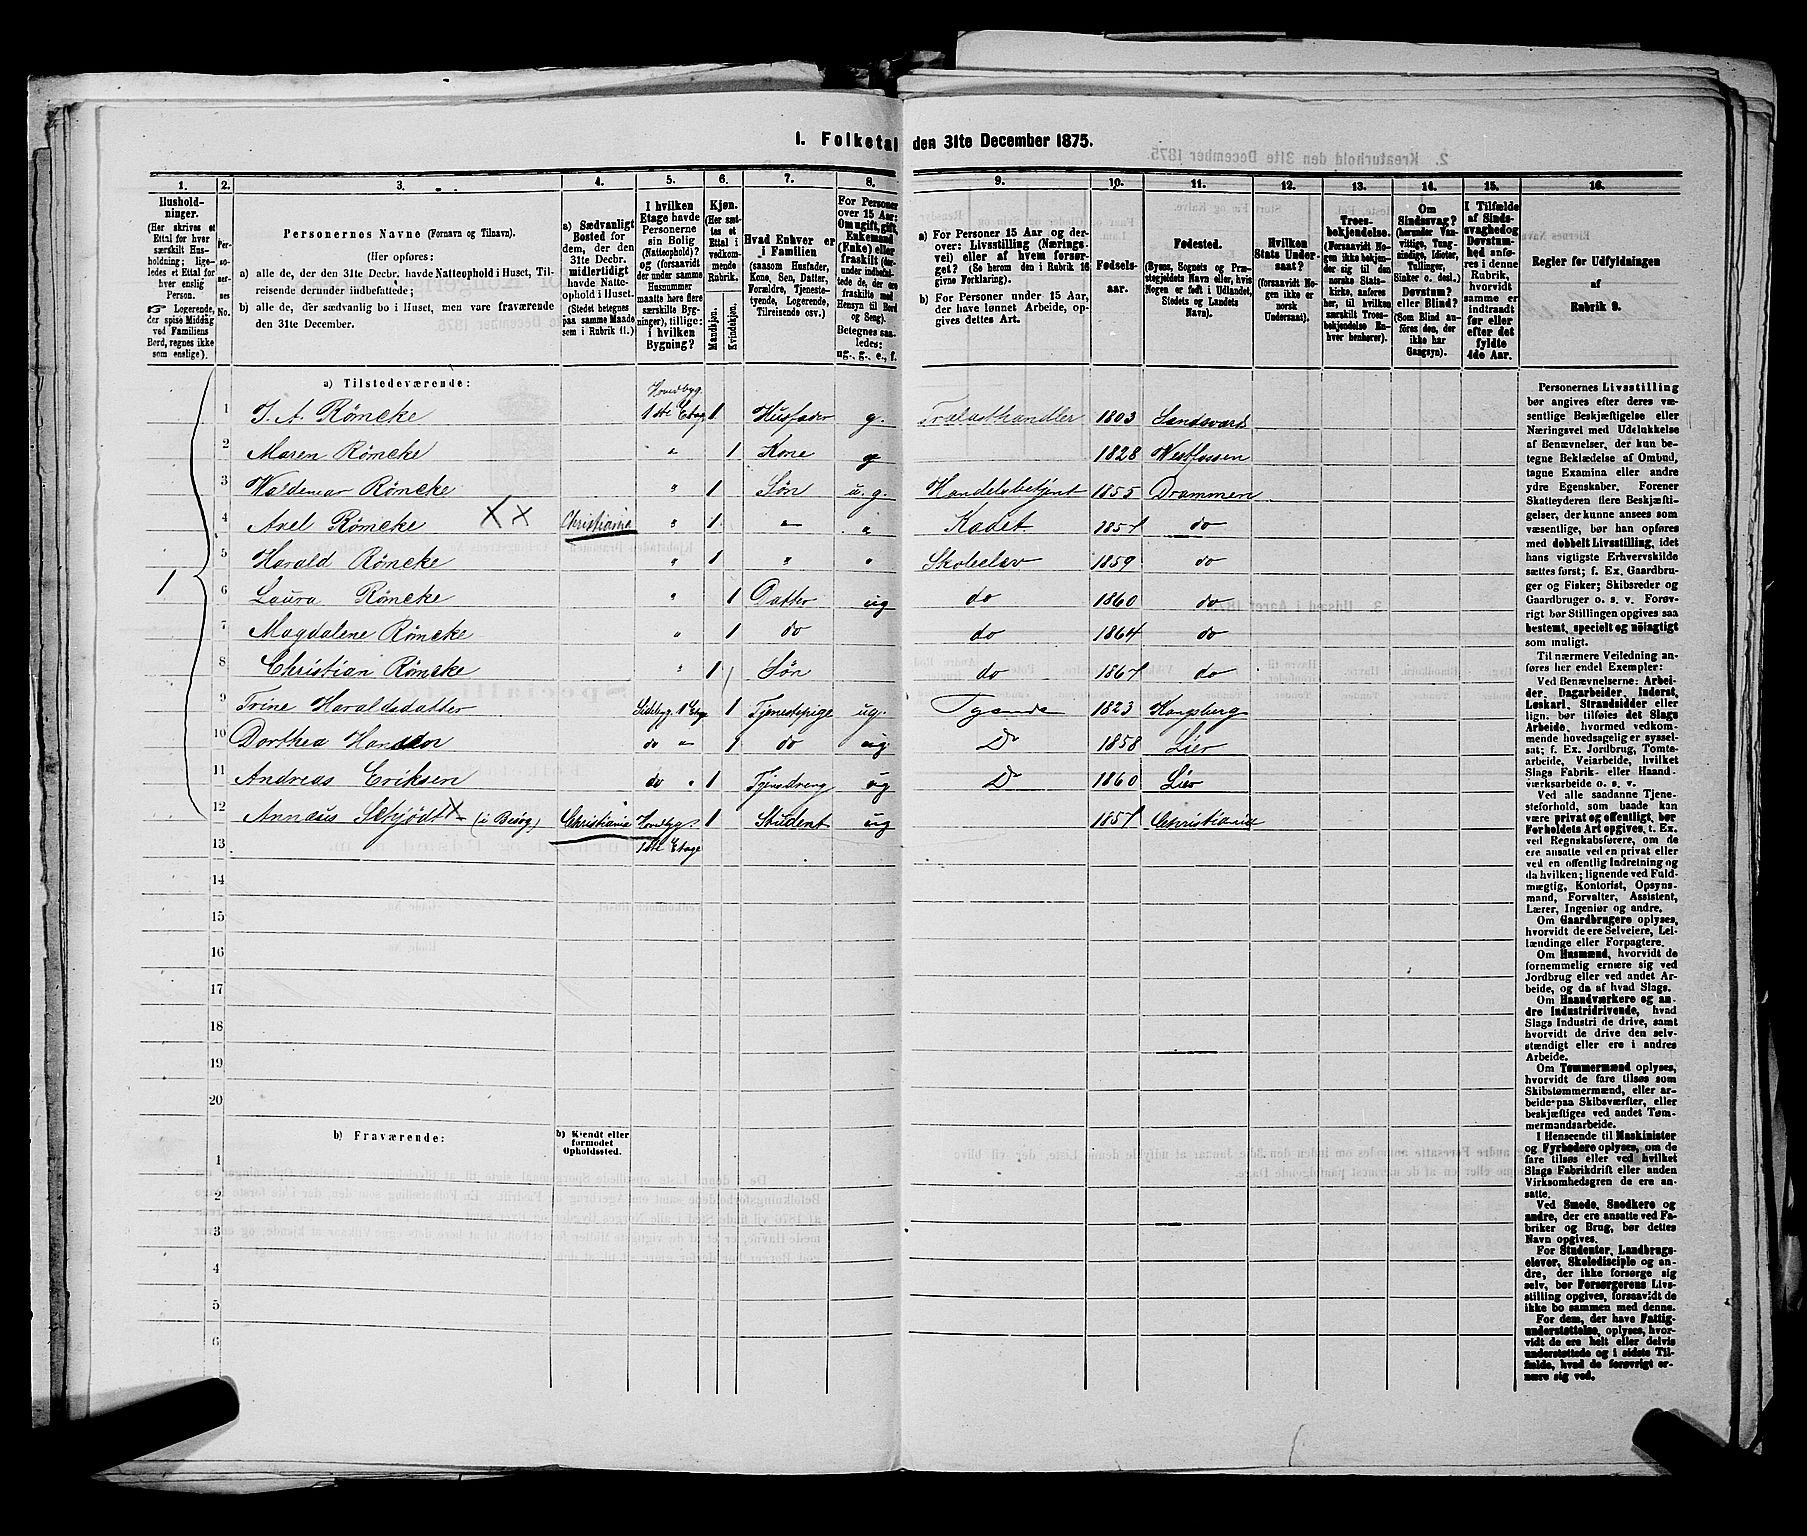 I. Folketal den 31te December 1875.
2. Kreaturhold den 31te December 1875.
1. 2. 3. 4. 5. 6. 7. 8. 9. 10. 11. 12. 13. 14. 15. 16.
Husholdninger.
(Her skrives et
Ettal for hver
særskilt Husholdning;
ligeledes et Ettal for
hver enslig
Person.
Logerende,
der spise Middag
ved Familiens
Bord, regnes ikke
som enslige).
Personernes No.
Personernes Navne (Fornavn og Tilnavn).
(Her opføres:
a) alle de, der den 31te Decbr. havde Natteophold i Huset, Tilreisende derunder indbefattede;
b) alle de, der sædvanlig bo i Huset, men vare fraværende
den 31te December.
a) Sædvanligt
Bosted for
dem, der den
31te Decbr.
midlertidigt
havde Natteophold i Huset.
(Stedet betegnes
paa samme Maade
som i Rubrik 11.)
I hvilken
Etage havde
Personerne
sin Bolig
(Natteophold)?
og (forsaavidt
der under samme
Husnummer
maatte høre flere
særskilte Bygninger), tillige:
i hvilken
Bygning?
Kjøn.
(Her sættes et
Ettal i
vedkommende
Rubrik.
Mandkjøn.
Kvindekjøn.
Hvad Enhver er
i Familien
(saasom Husfader,
Kone, Søn, Datter,
Forældre, Tjenestetyende, Logerende,
Tilreisende osv.)
For Personer
over 15 Aar:
Om ugift, gift,
Enkemand
(Enke) eller
fraskilt
Betegnes saaledes:
ug., g., e., f.
a) For Personer 15 Aar og derover: Livsstilling (Næringsvei) eller af hvem forsørget? (Se herom den i Rubrik 16
givne Forklaring).
b) For Personer under 15 Aar,
der have lønnet Arbeide, opgives dettes Art.
Fødselsaar.
Fødested.
(Byens, Sognets og Præstegjeldets Navn eller, hvis
Nogen er født i Udlandet,
Stedets og Landets
Navn).
Hvilken
Stats Undersaat?
(forsaavidt Nogen ikke er
norsk
Undersaat).
Troesbekjendelse.
(Forsaavidt Nogen ikke bekjender sig til den
norske Statskirke, anføres
her, til hvilken
særskilt Troesbekjendelse Enhver henhører).
Om
Sindssvag?
(herunder Vanvittige, Tungsindige, Idioter,
Tullinger,
Sinker o. desl.)
Døvstum?
eller Blind?
(Som Blind anføres den, der
ikke har
Gangsyn).
I Tilfælde
af Sindssvaghed og
Døvstumhed anføres i denne
Rubrik,
hvorvidt
samme er
indtraadt
før eller
efter det
fyldte
4de Aar.
Regler for Udfyldningen
af
Rubrik 9.
a) Tilstedeværende:
1
1 J. A. Römcke Hovedbyg. 1ste Etage 1 Husfader g. Trælasthandler 1803 Sandsværd
2 Maren Römcke " 1 Kone g 1828 Westfossen
3 Waldemar Römcke " 1 Søn u. g. Handelsbetjent 1855 Drammen
4 Axel Römcke XX Christiania " 1 " " Kadet 1857 do
5 Harald Römcke " 1 " " Skoleelev 1859 do
6 Laura Römcke " 1 Datter ug do 1860 do
7 Magdalene Römcke " 1 do do 1864 do
8 Christian Römcke " 1 Søn do 1867 do
9 Trine Haraldsdatter Sidebyg. 1 Etage 1 Tjenestepige ug. Tyende 1823 Kongsberg
10 Dorthea do " 1 do ug Do 1858 Lier
11 Andreas Eriksen do " 1 Tjenedreng ug Do 1860 Lier
12 Annæus Schjødt X (i Besøg) Christiania Hovedbyg. 1 Student ug 1857 Christiania
13 1ste Etage
14
15
16
17
18
19
20
b) Fraværende: b) Kjendt eller
formodet
Opholdssted.
1
2
3
4
5
6
Personernes Livsstilling
bør angives efter deres væsentlige Beskjæftigelse eller
Næringsvei med Udelukkelse
af Benævnelser, der kun betegne Beklædelse af Ombud,
tagne Examina eller andre
ydre Egenskaber. Forener
Skatteyderen flere Beskjæftigelser, der kunne ansees som
væsentlige, bør han opføres
med dobbelt Livsstilling, idet
hans vigtigste Erhvervskilde
sættes først; f. Ex. Gaardbruger og Fisker; Skibsreder og
Gaardbruger o. s. v. Forøvrigt bør Stillingen opgives saa
bestemt, specielt og nöiagtigt
som muligt.
Til nærmere Veiledning anføres her endel Exempler:
Ved Benævnelserne: Arbeider, Dagarbeider, Inderst,
Løskarl, Strandsidder eller
lign. bør tilføies det Slags
Arbeide, hvormed vedkommende hovedsagelig er sysselsat; f. Ex. Jordbrug, Tomtearbeide, Veiarbeide, hvilket
Slags Fabrik- eller Haandværksarbeide o. s. v.
Ved alle saadanne Tjenesteforhold, som baade kan
være privat og offentligt, bør
Forholdets Art opgives, t. Ex.
ved Regnskabsførere, om de
ere ansatte ved en privat eller
ved en offentlig Indretning og
da hvilken; lignende ved Fuldmægtig, Kontorist, Opsynsmand, Forvalter, Assistent,
Lærer, Ingeniør og andre.
Om Gaardbrugere oplyses,
hvorvidt de ere Selveiere, Leilændinge eller Forpagtere.
Om Husmænd, hvorvidt de
fornemmelig ernære sig ved
Jordbrug eller ved andet Arbeide, og da af hvad Slags.
Om Haandværkere og andre industridrivende, hvad
Slags Industri de drive, samt
hvorvidt de drive den selvstændigt eller ere i andres
Arbeide.
Om Tømmermænd oplyses,
hvorvidt de fare tilsøs som
Skibstømmermænd, eller arbeide paa Skibsværfter, eller
beskjæftiges ved andet Tømmermandsarbeide.
I Henseende til Maskinister
og Fyrbødere oplyses, om de
fare tilsøs eller ved hvilket
Slags Fabrikdrift eller anden
Virksomhedsgren de ere ansatte.
Ved Smede, Snedkere og
andre, der ere ansatte ved Fabriker og Brug, bør dettes
Navn opgives.
For Studenter, Landbrugselever, Skoledisciple og andre, der ikke forsørge sig
selv, bør Forsørgerens Livsstilling opgives, forsaavidt de
ikke bo sammen med denne.
For dem, der have Fattigunderstøttelse, oplyses, hvorvidt de ere helt eller delvis
understøttede og i sidste Tilfælde, hvad de forøvrigt ernære sig ved.